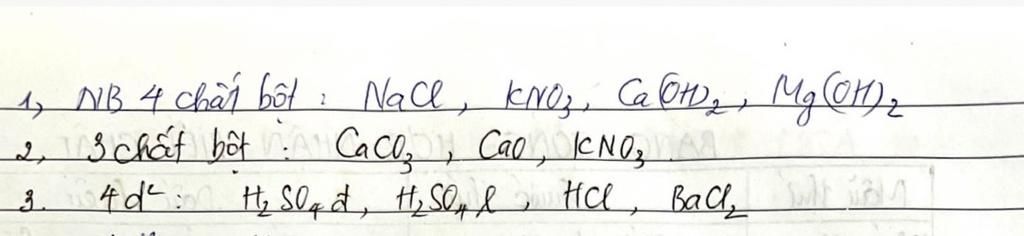 1, NB 4 chất bột : NaCl, KNO₃, Ca(OH)₂, Mg(OH)₂
2, 3 chất bột : CaCO₃, CaO, KNO₃.
3. 4 d² : H₂SO₄ đ, H₂SO₄ l, HCl, BaCl₂